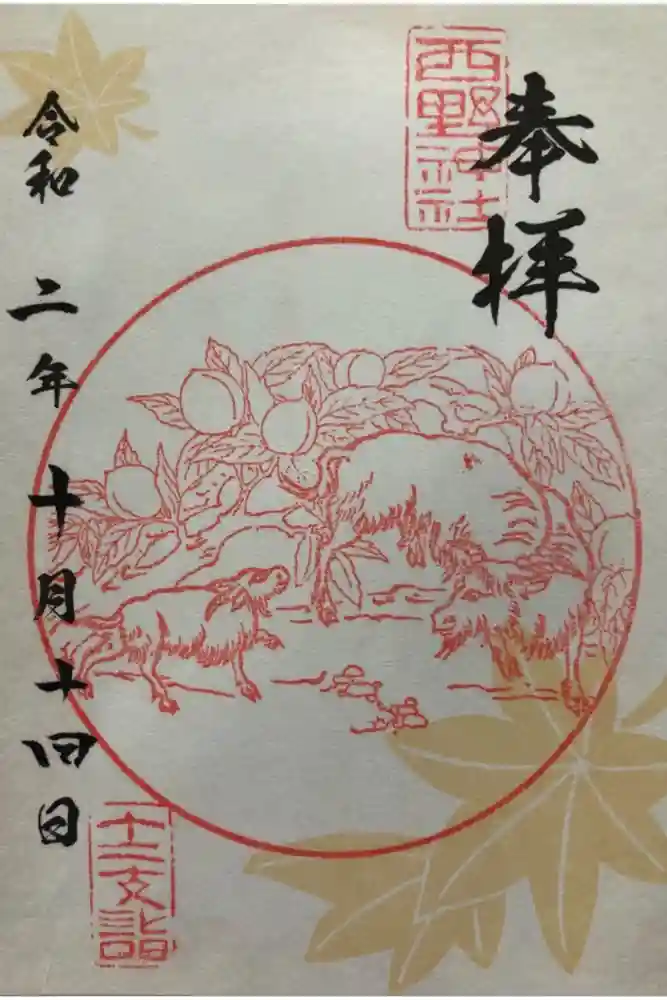 奉拝
西野神社
令和 二年 十月十四日
十二支詣